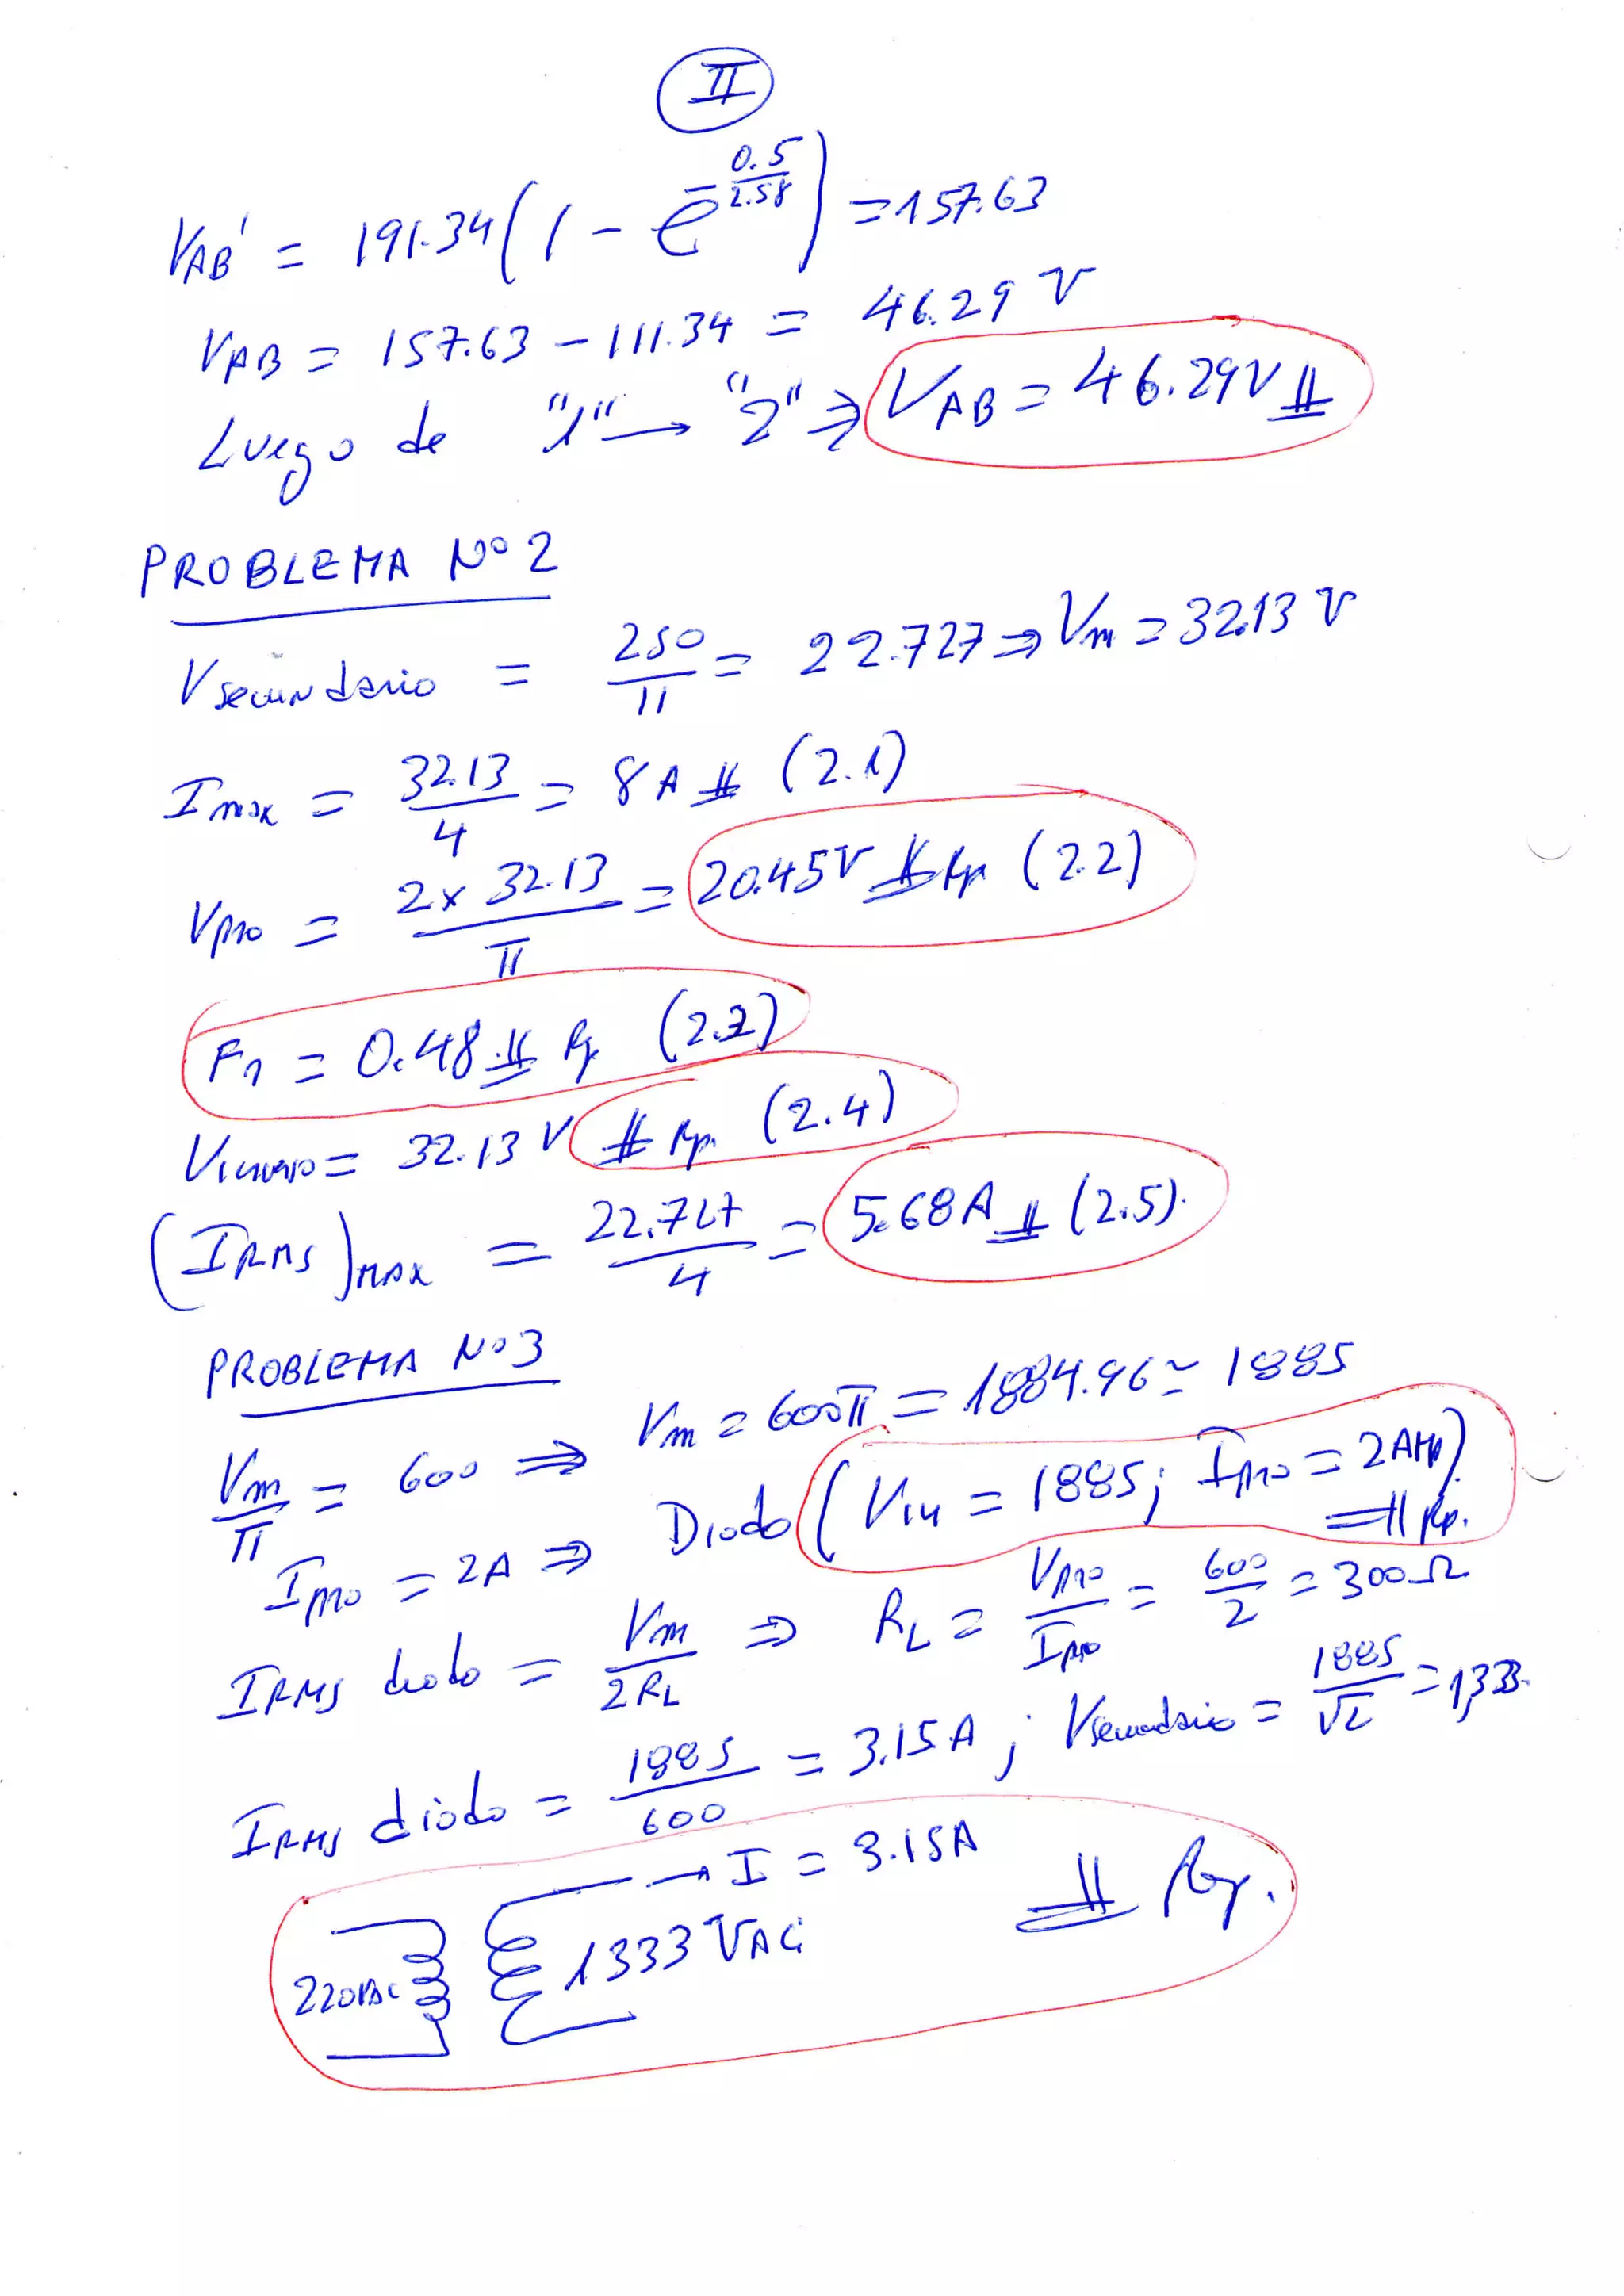 II
VAB' = 191.34(1 - e^-0.5/2.58) = 157.63
VAB = 157.63 - 111.34 = 46.29 V
Luego de "1" → "2" ⇒ VAB = 46.29V
PROBLEMA Nº 2
Vsecundario = 250/11 = 22.727 ⇒ Vm = 32.13 V
Imax = 32.13/4 = 8A (2.1)
Vpro = 2 x 32.13/π = 20.45V Rp (2.2)
Fr = 0.48 Rp (2.3)
Vinverso = 32.13 V Rp. (2.4)
(IRMS)MAX = 22.727/4 = 5.68A (2.5).
PROBLEMA Nº 3
Vm/π = 600 ⇒ Vm = 600π = 1884.96 ≃ 1885
Ipro = 2A ⇒ Diodo (Vin = 1885; Ipro = 2AMP) Rp.
IRMS diodo = Vm/2RL ⇒ RL = Vpro/Ipro = 600/2 = 300Ω
IRMS diodo = 1885/600 = 3.15A; Vsecundario = 1885/√2 = 1,333.
→ I = 3.15A
220VAC 1333 VAC Rp.